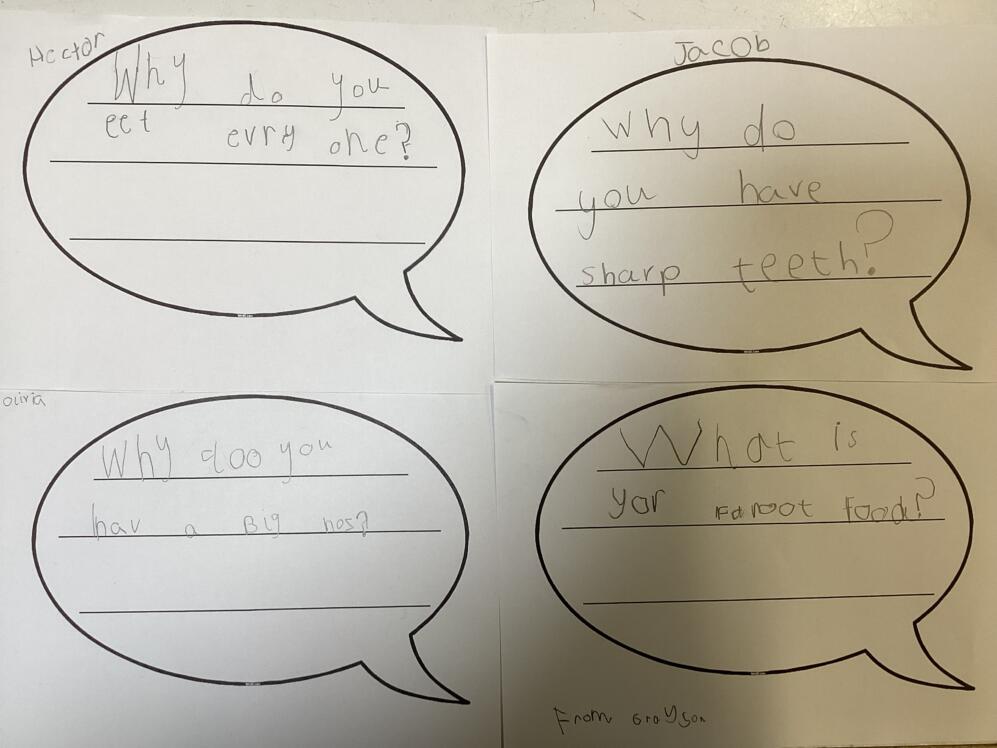 Hector
Why do you
eet evry one?
Jacob
Why do
you have
sharp teeth?
Olivia
Why doo you
hav a Big nos?
What is
yor Faroot food?
From Grayson